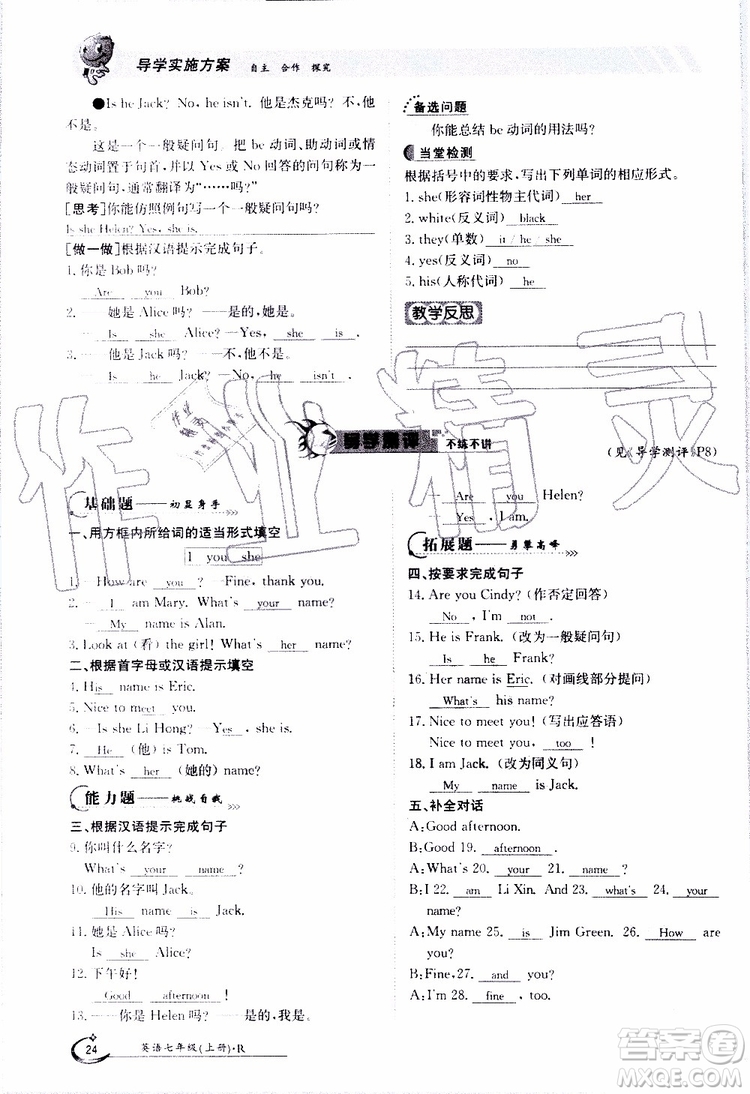 导学实施方案 自主 合作 探究
●Is he Jack? No, he isn't. 他是杰克吗？不，他
不是。
这是一个一般疑问句。把 be 动词、助动词或情
态动词置于句首，并以 Yes 或 No 回答的问句称为一
般疑问句，通常翻译为“……吗？”
[思考]你能仿照例句写一个一般疑问句吗？
Is she Helen? Yes, she is.
[做一做]根据汉语提示完成句子。
1. 你是 Bob 吗？
Are you Bob?
2. ——她是 Alice 吗？——是的，她是。
—Is she Alice? —Yes, she is.
3. ——他是 Jack 吗？——不，他不是。
—Is he Jack? —No, he isn't.
备选问题
你能总结 be 动词的用法吗？
当堂检测
根据括号中的要求，写出下列单词的相应形式。
1. she(形容词性物主代词) her
2. white(反义词) black
3. they(单数) it / he / she
4. yes(反义词) no
5. his(人称代词) he
教学反思
导学测评 不练不讲
(见《导学测评》P8)
基础题——初显身手
一、用方框内所给词的适当形式填空
I you she
1. —How are you? —Fine, thank you.
2. —I am Mary. What's your name?
—My name is Alan.
3. Look at (看) the girl! What's her name?
二、根据首字母或汉语提示填空
4. His name is Eric.
5. Nice to meet you.
6. —Is she Li Hong? —Yes, she is.
7. He (他) is Tom.
8. What's her (她的) name?
能力题——挑战自我
三、根据汉语提示完成句子
9. 你叫什么名字？
What's your name?
10. 他的名字叫 Jack。
His name is Jack.
11. 她是 Alice 吗？
Is she Alice?
12. 下午好！
Good afternoon!
13. ——你是 Helen 吗？——是的，我是。
—Are you Helen?
—Yes, I am.
拓展题——勇攀高峰
四、按要求完成句子
14. Are you Cindy? (作否定回答)
No, I'm not.
15. He is Frank. (改为一般疑问句)
Is he Frank?
16. Her name is Eric. (对画线部分提问)
What's his name?
17. Nice to meet you! (写出应答语)
Nice to meet you, too!
18. I am Jack. (改为同义句)
My name is Jack.
五、补全对话
A: Good afternoon.
B: Good 19. afternoon.
A: What's 20. your 21. name?
B: I 22. am Li Xin. And 23. what's 24. your
name?
A: My name 25. is Jim Green. 26. How are
you?
B: Fine, 27. and you?
A: I'm 28. fine, too.
24 英语七年级(上册)·R
作业精灵